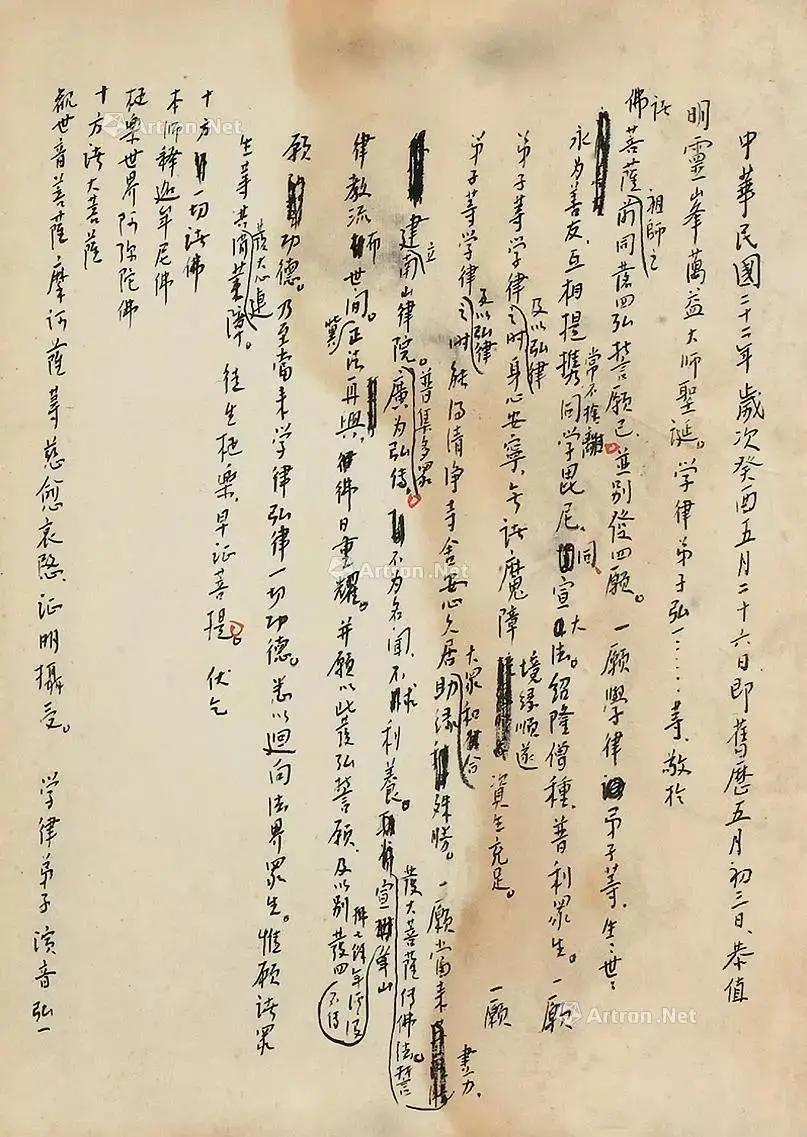 中華民國二十二年歲次癸酉五月二十六日即舊歷五月初三日、恭值
明靈峯蕅益大師聖誕。学律弟子弘一……等、敬於
諸
佛菩薩祖師之前同發四弘誓願已、並別發四願。一願學律弟子等、生生世世
永为善友、互相提攜常不捨離、同学毘尼、同宣大法。紹隆僧種、普利眾生。一願
弟子等学律及以弘律之时身心安寧、无諸魔障境緣順遂資生充足。一願
弟子等学律及以弘律之时能得清净寺舍安心久居大眾和合助緣殊勝。一願當来
建立南山律院。普集多眾廣为弘傳。不为名闻、不求利養。發大菩薩作佛法誓盡力、宣
律教流布世间。冀正法再興、佛日重耀。并願以此發弘誓願、及以別發四
願功德。乃至當来学律弘律一切功德。悉以迴向法界眾生。惟願諸眾
生等發大心速共消業障。往生極樂、早证菩提。伏乞
十方一切諸佛
本師釋迦牟尼佛
極樂世界阿弥陀佛
十方諸大菩薩
觀世音菩薩摩诃薩等慈愈哀愍、证明攝受。 学律弟子演音弘一
Artron.Net
Artron.Net
Artron.Net
Artron.Net